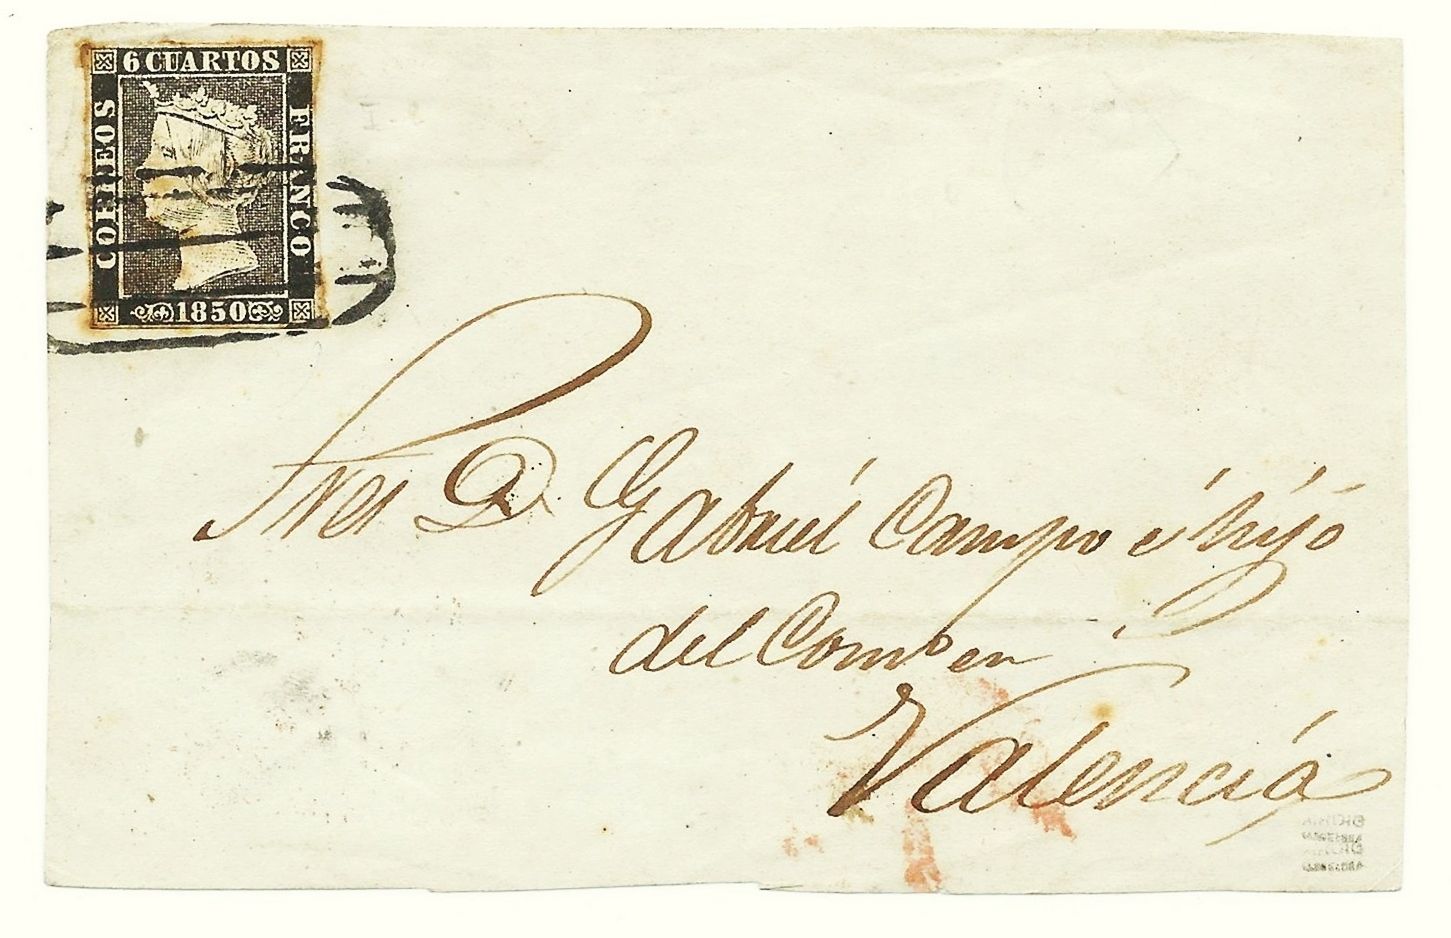 6 CUARTOS
CORREOS
FRANCO
1850
Sres D. Gabriel Campo é hijo
del Comº en
Valencia